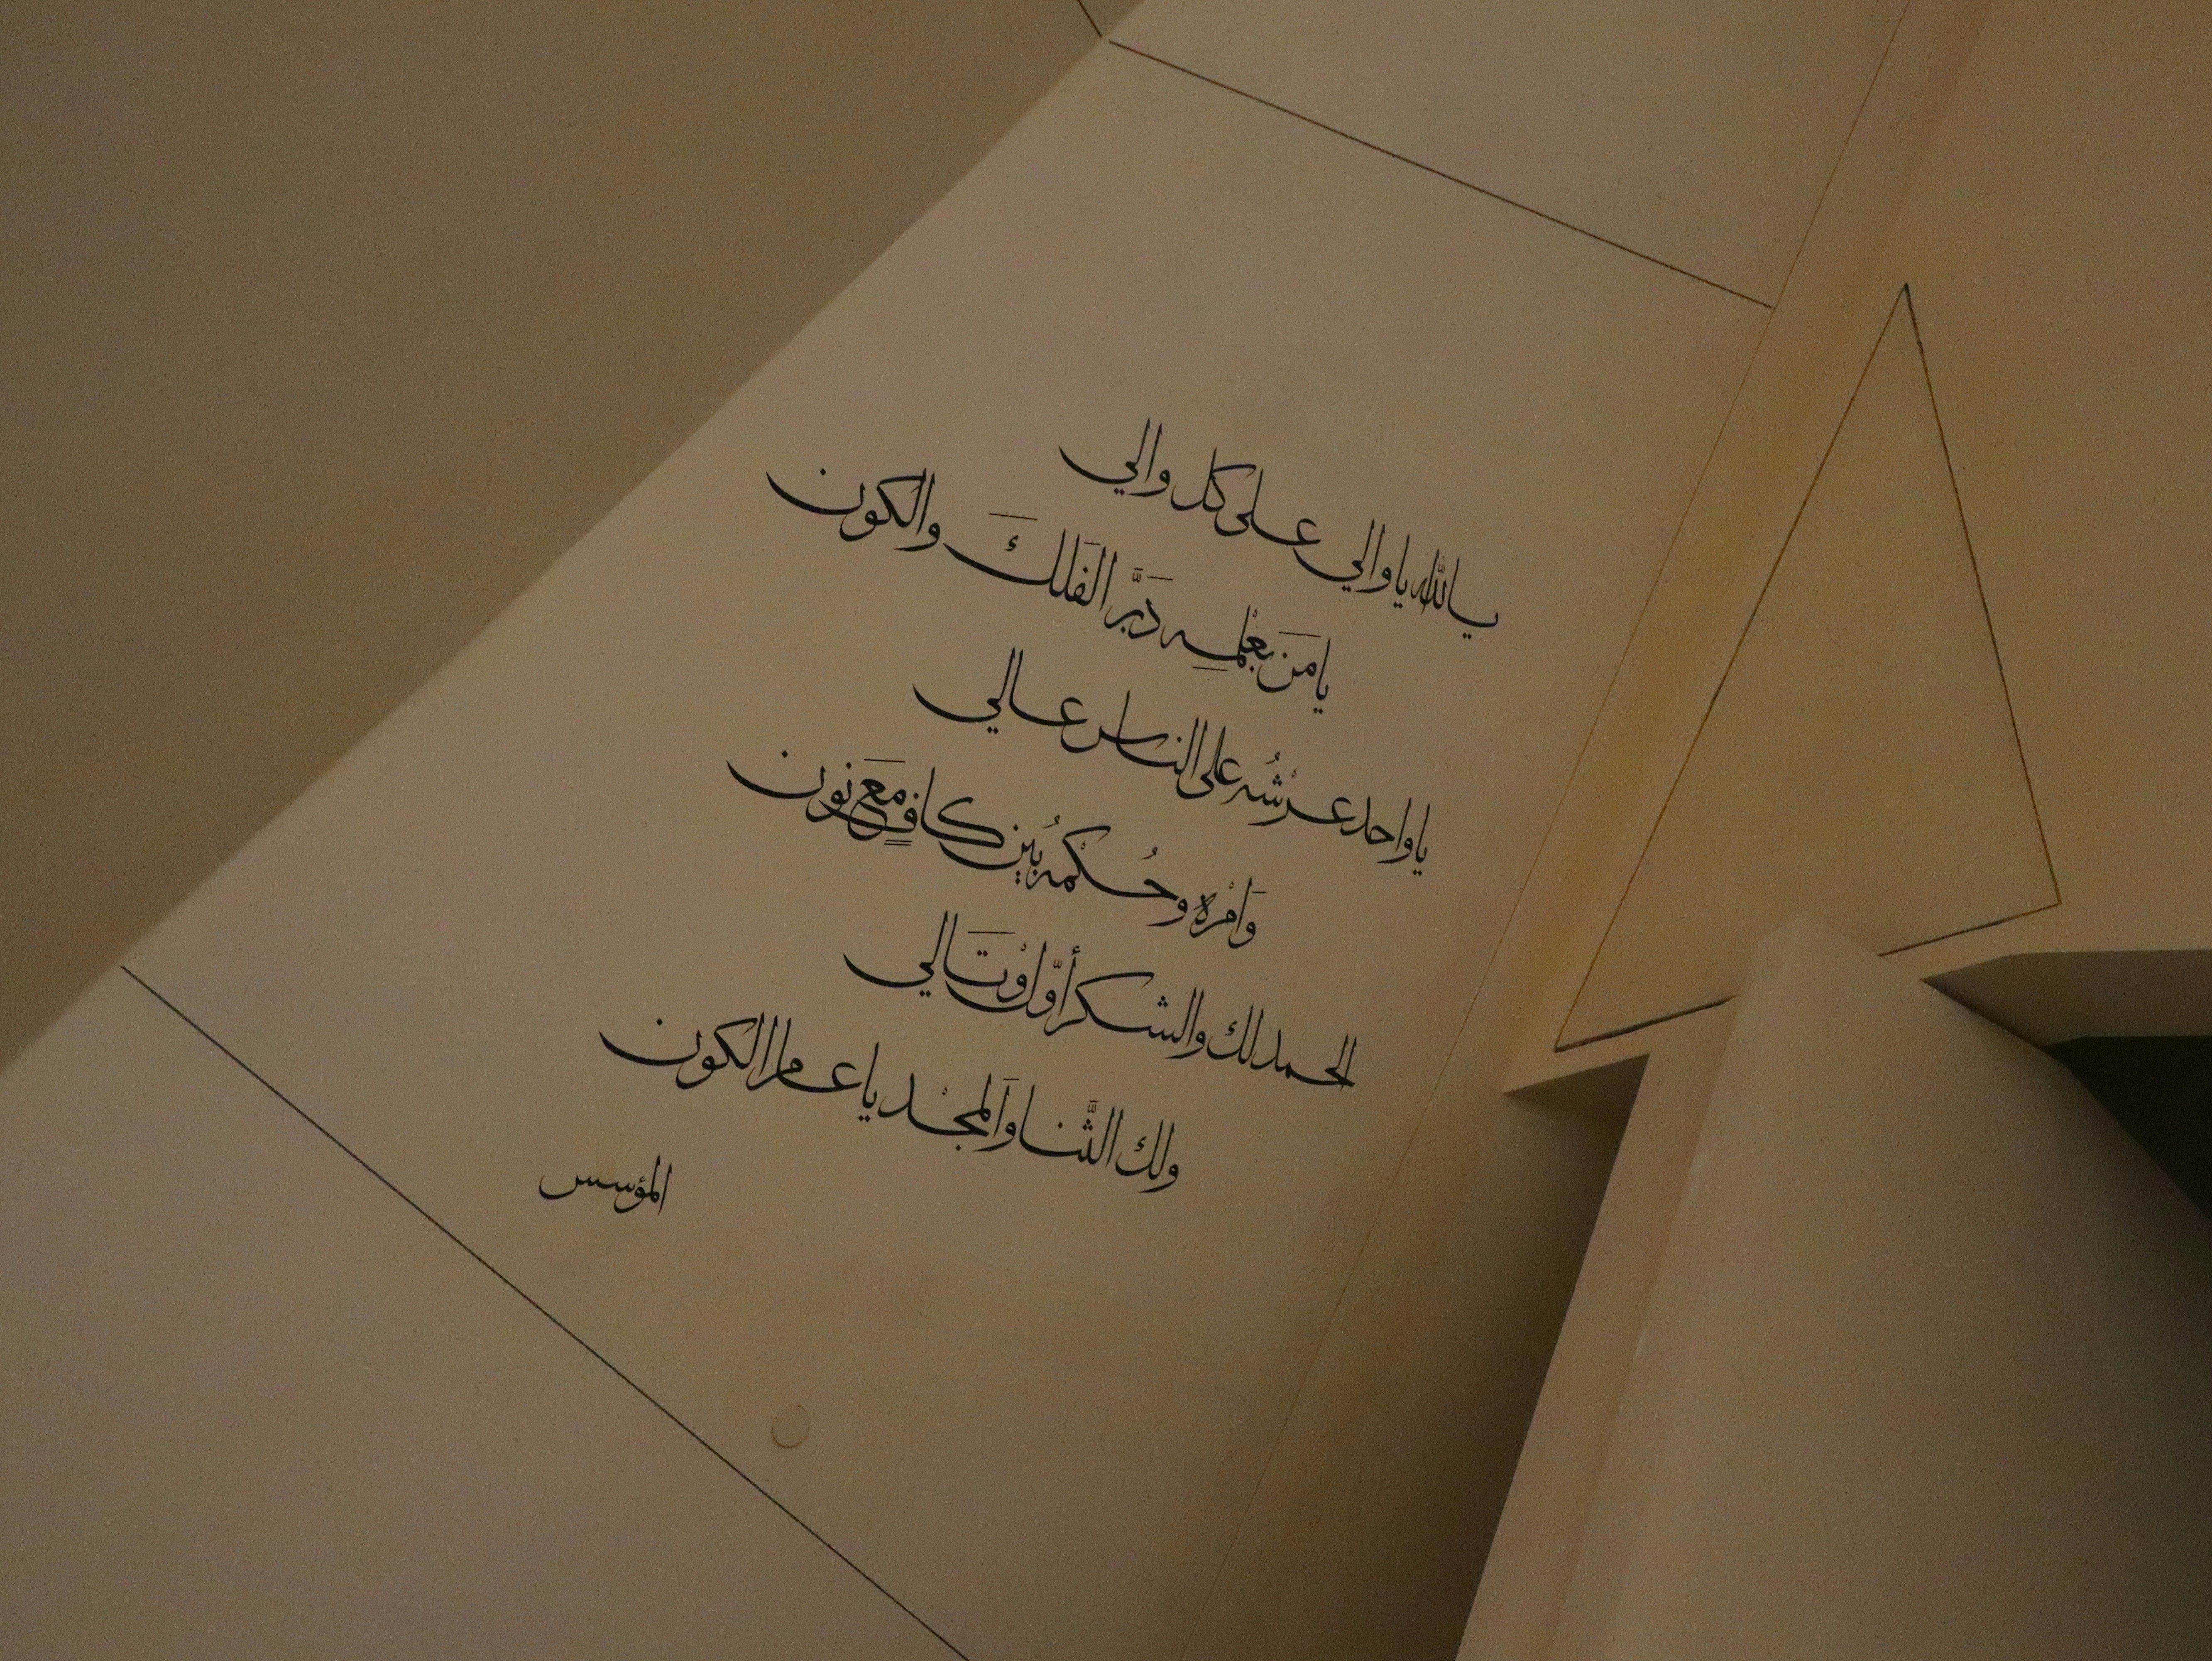 يالله يا والي على كل والي
يا مَن بعلمِه دَبَّر الفَلَك والكون
يا واحد عرْشُه على الناس عالي
وَامْره وحُكْمُه بين كافٍ مَعَ نون
الحمد لك والشكر أوّل وْتَالي
ولك الثَّنا وَالمجْد يا عامر الكون
المؤسس